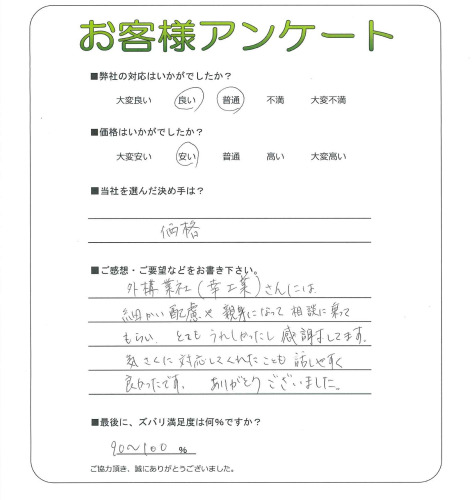 お客様アンケート
■弊社の対応はいかがでしたか?
大変良い 良い 普通 不満 大変不満
■価格はいかがでしたか?
大変安い 安い 普通 高い 大変高い
■当社を選んだ決め手は?
価格
■ご感想・ご要望などをお書き下さい。
外構業社(幸工業)さんには
細かい配慮や親身になって相談に乗って
もらい、とてもうれしかったし感謝してます。
気さくに対応してくれたことも話しやすく
良かったです。ありがとうございました。
■最後に、ズバリ満足度は何%ですか?
90～100 %
ご協力頂き、誠にありがとうございました。